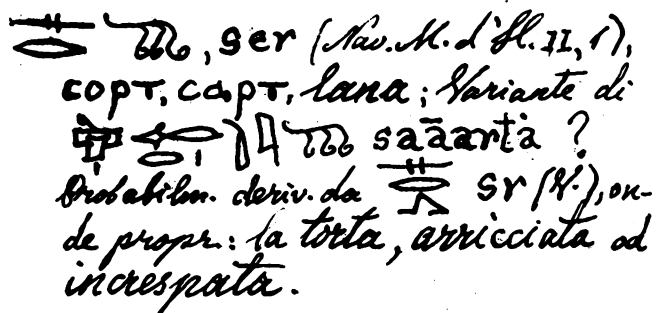 𓊃𓂋𓄛, ser (Nav. M. d'H. II, 1),
ⲥⲟⲣⲧ, ⲥⲁⲣⲧ, lana; Variante di
saāartȧ ?
Probabilm. deriv. da 𓊃𓂋𓂻 sr (V.), on-
de propr.: la torta, arricciata od
increspata.